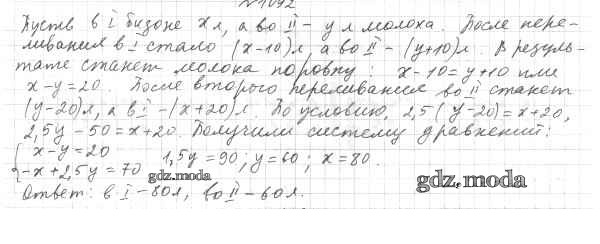 №1092
Пусть в I бидоне x л, а во II – y л молока. После пере-
ливания в I стало (x-10) л, а во II – (y+10) л. В резуль-
тате станет молока поровну: x-10=y+10 или
x-y=20. После второго переливания во II станет
(y-20) л, а в I – (x+20) л. По условию, 2,5(y-20)=x+20,
2,5y-50=x+20. Получили систему уравнений:
{ x-y=20
-x+2,5y=70 1,5y=90; y=60; x=80.
gdz.moda
gdz.moda
Ответ: в I – 80л, во II – 60л.